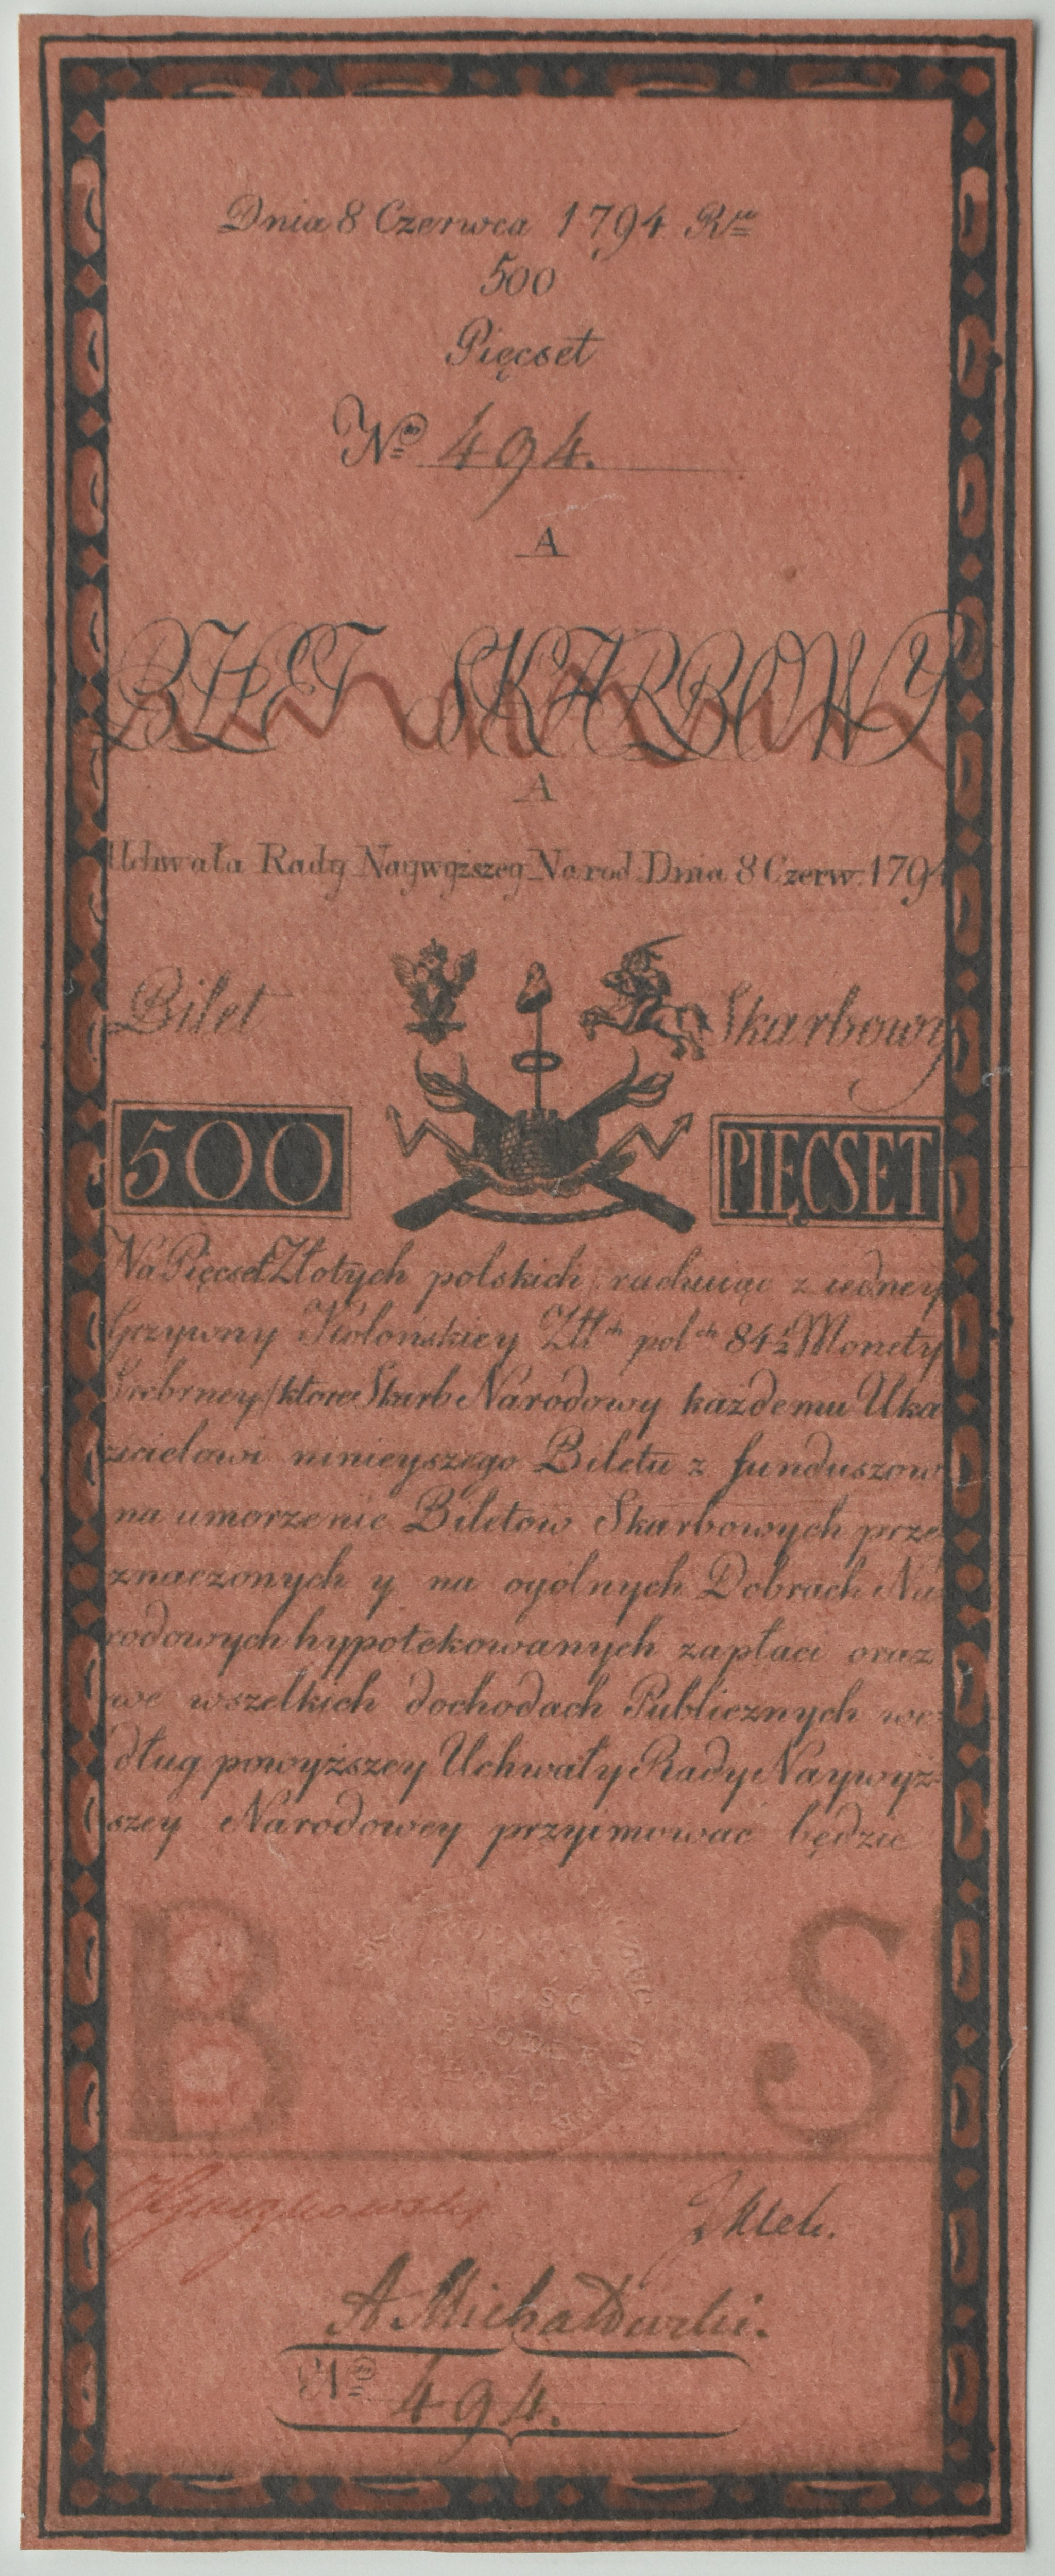 Dnia 8 Czerwca 1794 Ru
500
Pięcset
No 494.
A
BILET SKARBOWY
A
Uchwała Rady Naywyższey Narod Dnia 8 Czerw. 1794
Bilet Skarbowy
500 PIĘCSET
Na Pięcset Złotych polskich / rachuiąc z iedney
Grzywny Kolonskiey Złłch polch 84½ Monety
Srebrney / ktore Skarb Narodowy każdemu Uka
zicielowi ninieyszego Biletu z funduszow
na umorzenie Biletow Skarbowych prze
znaczonych y na ogolnych Dobrach Na
rodowych hypotekowanych zapłaci oraz
we wszelkich dochodach Publicznych we
dług powyższey Uchwały Rady Naywyż
szey Narodowey przyimować będzie
B S
A Michałowski.
No 494.